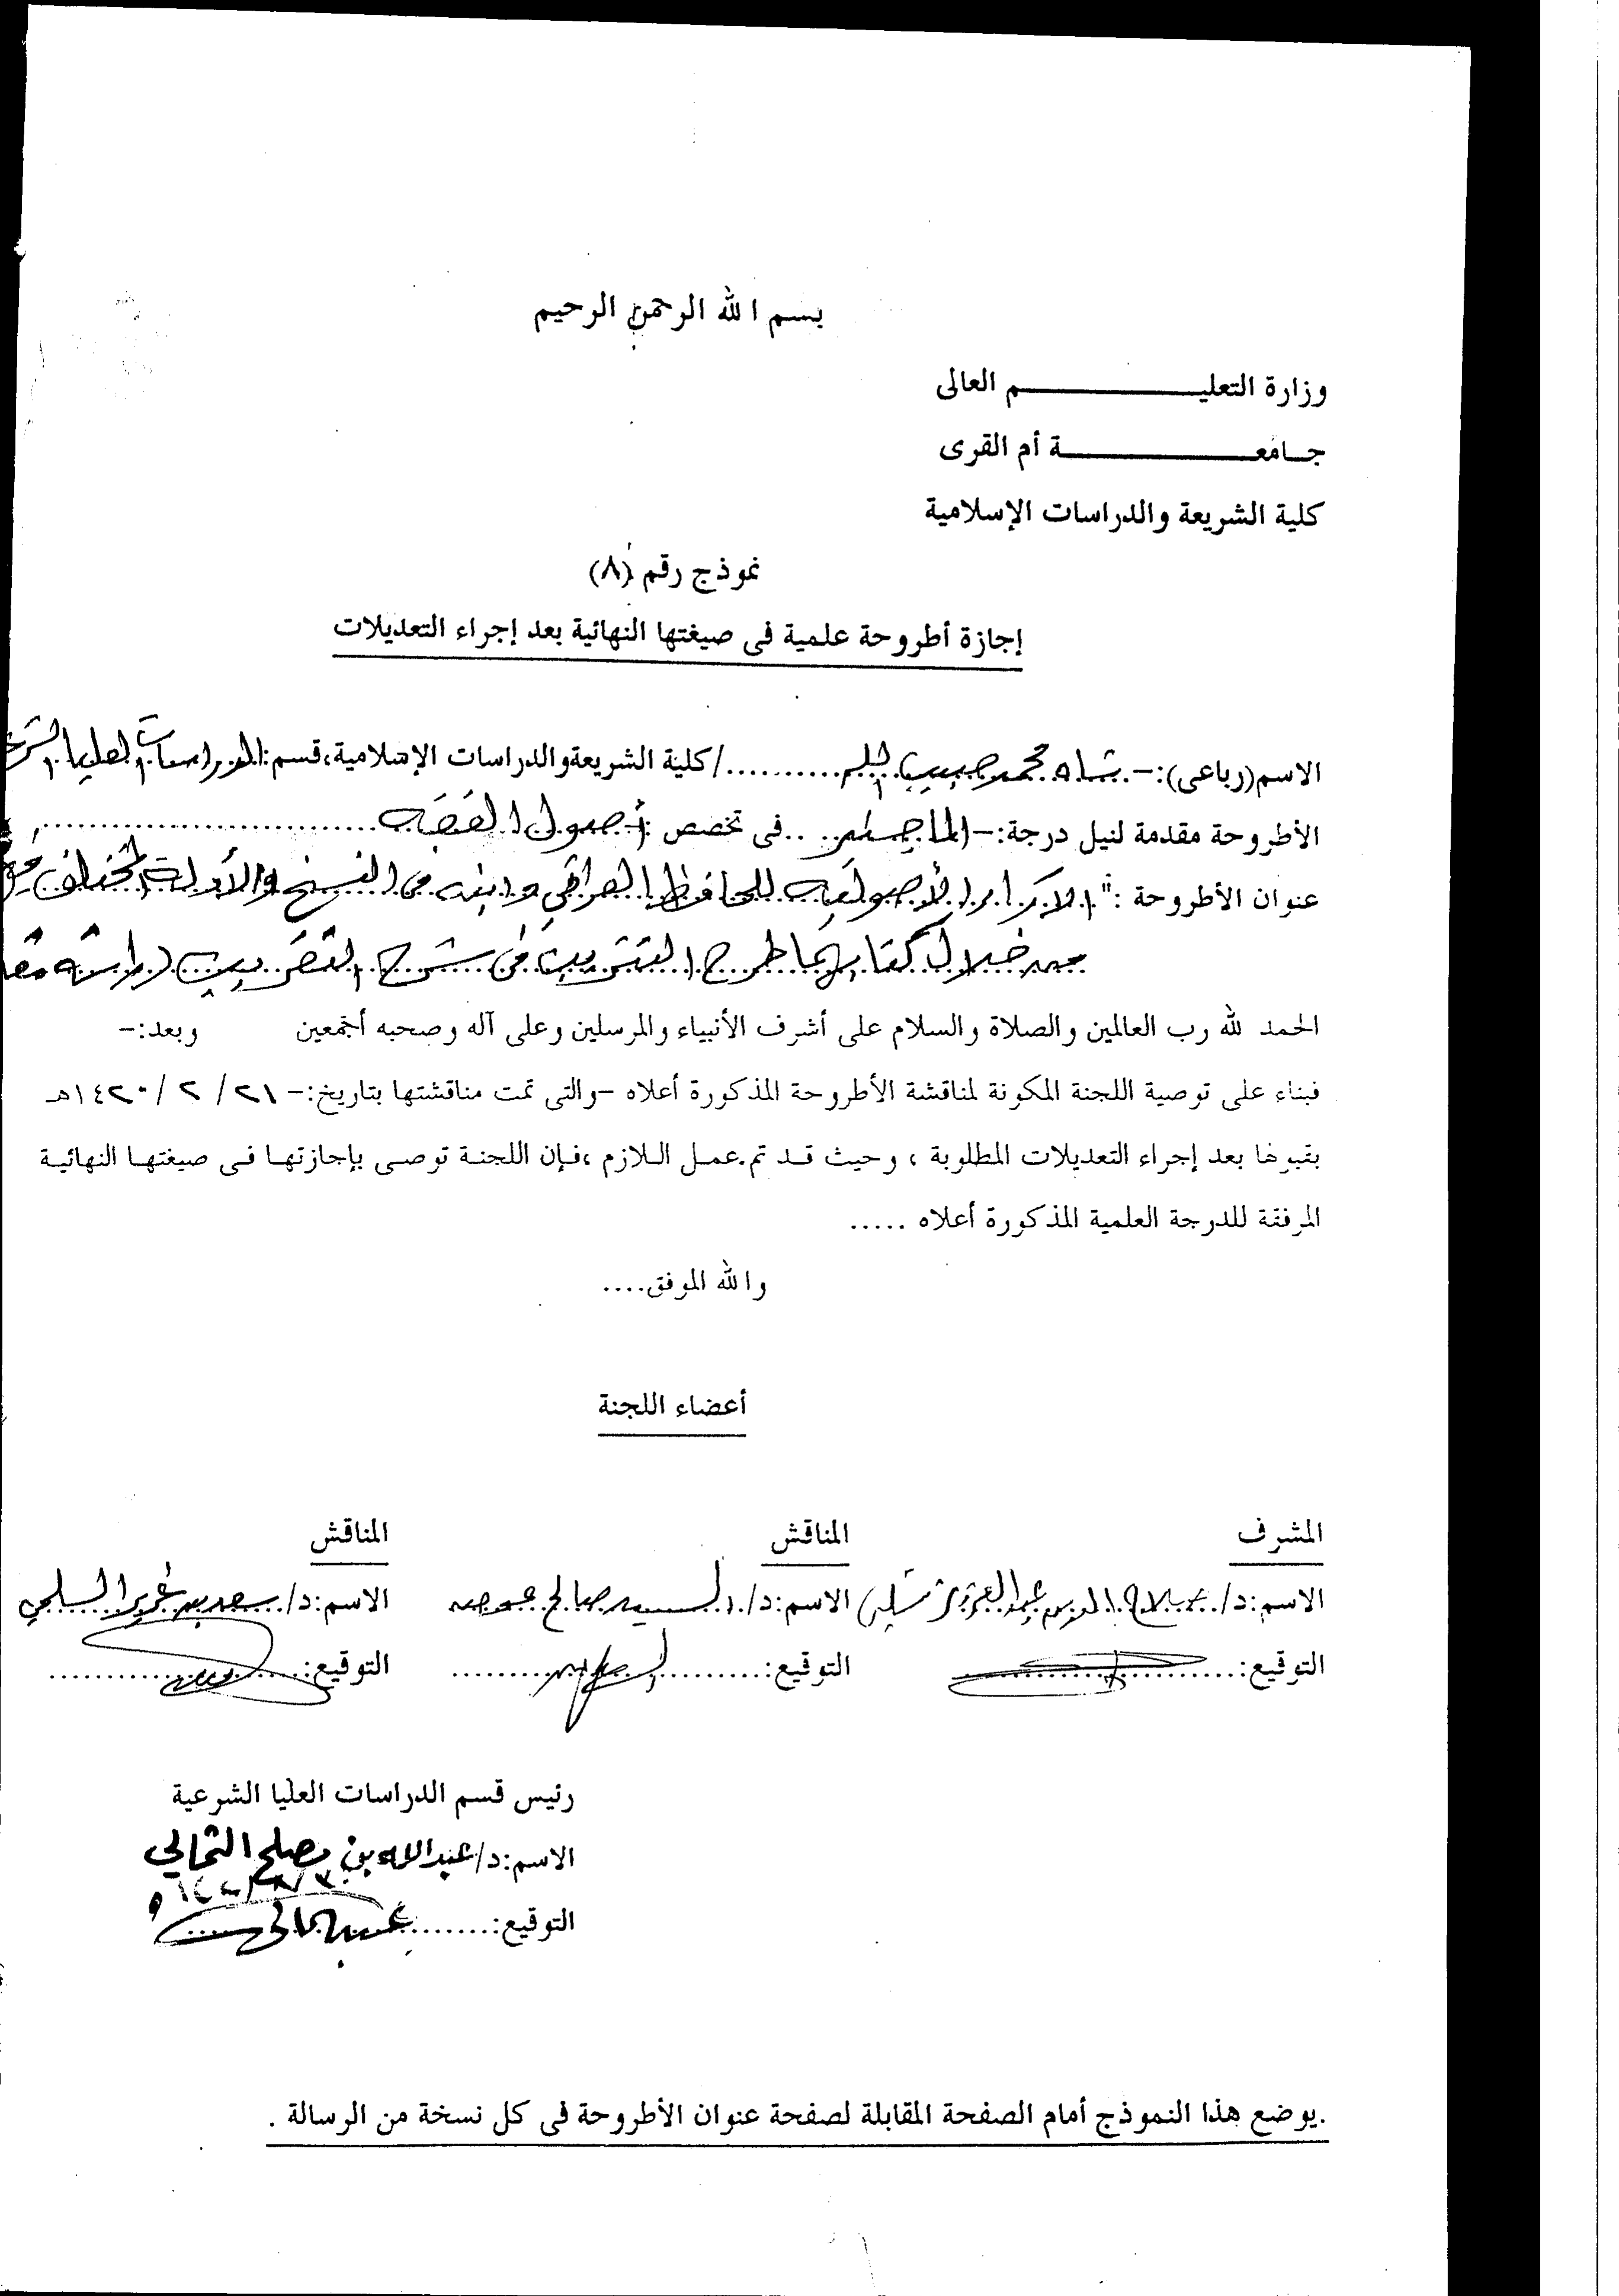 بسم الله الرحمن الرحيم
وزارة التعليـــــــــــم العالى
جـــامعـــــــــــة أم القرى
كلية الشريعة والدراسات الإسلامية
نموذج رقم (٨)
إجازة أطروحة علمية فى صيغتها النهائية بعد إجراء التعديلات
الاسم(رباعى):- شاه محمد حبيب ........../كلية الشريعة والدراسات الإسلامية،قسم:الدراسات العليا
الأطروحة مقدمة لنيل درجة:- الماجستير ..فى تخصص :أصول الفقه................................
عنوان الأطروحة :" الآراء الأصولية للحافظ العراقي وابنه في النسخ والأدلة المختلف
من خلال كتابهما طرح التثريب في شرح التقريب دراسة
الحمد لله رب العالمين والصلاة والسلام على أشرف الأنبياء والمرسلين وعلى آله وصحبه أجمعين وبعد:-
فبناء على توصية اللجنة المكونة لمناقشة الأطروحة المذكورة أعلاه -والتى تمت مناقشتها بتاريخ:- ٢١/ ٢ /١٤٢٠هـ
بقبولها بعد إجراء التعديلات المطلوبة ، وحيث قد تم.عمل اللازم ،فإن اللجنة توصى بإجازتها فى صيغتها النهائية
المرفقة للدرجة العلمية المذكورة أعلاه .....
والله الموفق....
أعضاء اللجنة
المشرف المناقش المناقش
الاسم:د/ عبدالعزيز الاسم:د/ السيد صالح عوض الاسم:د/ سعد بن غرير السلمي
التوقيع:.................... التوقيع:.................... التوقيع:....................
رئيس قسم الدراسات العليا الشرعية
الاسم:د/ عبدالله بن مصلح الثمالي
التوقيع:........
.يوضع هذا النموذج أمام الصفحة المقابلة لصفحة عنوان الأطروحة فى كل نسخة من الرسالة .